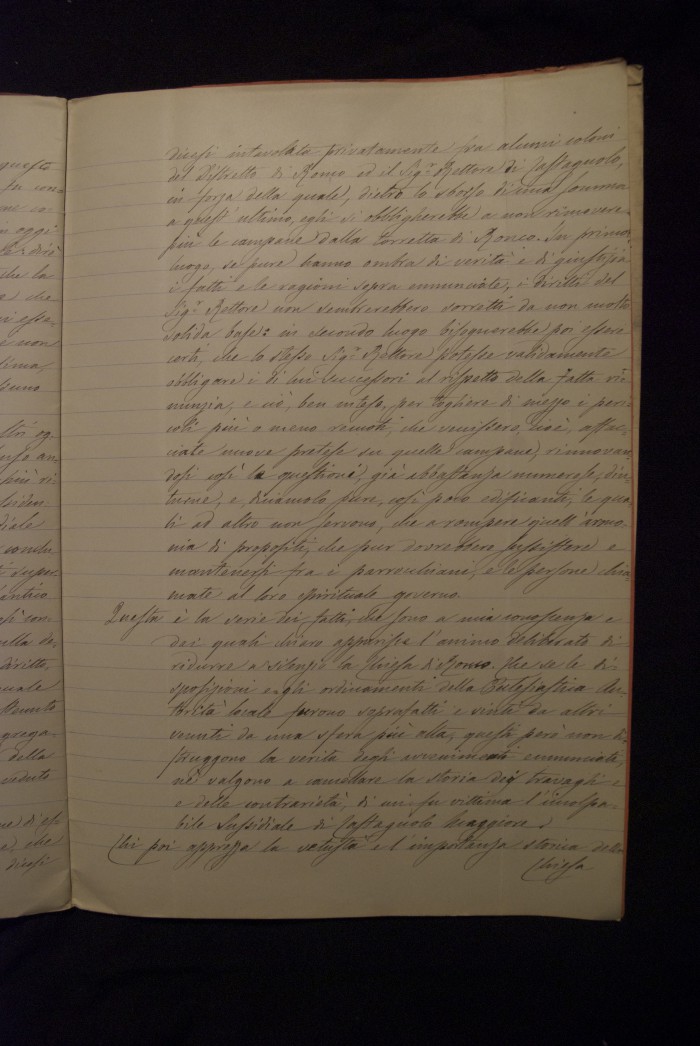 questo
oggi
dirò
che la
che
non
tima,
dicesi intavolata privatamente fra alcuni coloni
del Distretto di Ronco ed il Sig.r Rettore di Castagnolo,
in forza della quale, dietro lo sborso di una somma
a quest'ultimo, egli si obbligherebbe a non rimovere
più le campane dalla torretta di Ronco. In primo
luogo, se pure hanno ombra di verità e di giustizia
i fatti e le ragioni sopra enunciate, i diritti del
Sig.r Rettore non sembrerebbero sorretti da non molto
solida base: in secondo luogo bisognerebbe poi essere
certi, che lo stesso Sig.r Rettore potesse validamente
obbligare i di lui successori al rispetto della fatta ri=
nunzia, e ciò, ben inteso, per togliere di mezzo i peri
coli più o meno remoti, che venissero cioè, affac=
ciate nuove pretese su quelle campane, rinnovan
dosi così le questioni, già abbastanza numerose, diu=
turne, e diciamolo pure, così poco edificanti, le qua=
li ad altro non servono, che a rompere quell'armo
nia di propositi, che pur dovrebbe sussistere e
mantenersi fra i parrocchiani, e le persone chia
mate al loro spirituale governo.
Questa è la serie dei fatti, che sono a mia conoscenza e
dei quali chiaro apparisce l'animo deliberato di
ridurre a silenzio la Chiesa di Ronco. Che se le di
sposizioni e gli ordinamenti della Ecclesiastica Au=
torità locale furono soprafatti e vinti da altri
venuti da una sfera più alta, questi però non di=
struggono la verità degli avvenimenti enunciati,
nè valgono a cancellare la storia dei travagli e
e delle contrarietà, di cui fu vittima l'incolpa=
bile Sussidiale di Castagnolo Maggiore.
Chi poi apprezza la vetustà e l'importanza storica della
Chiesa
della
veduto
che
dicesi